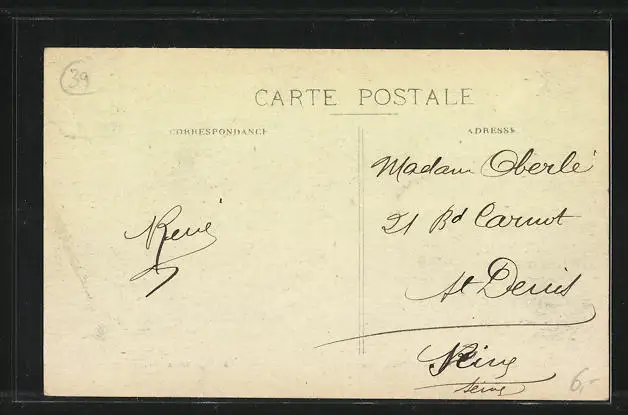 39
CARTE POSTALE
CORRESPONDANCE
ADRESSE
Madam Oberlé
21 Bd Carnot
St Denis
René
Seine
Seine
6.-